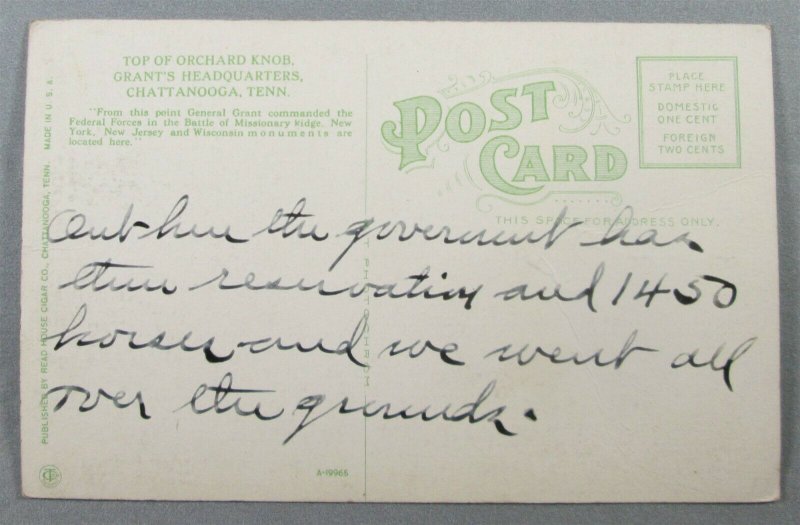 TOP OF ORCHARD KNOB,
GRANT'S HEADQUARTERS,
CHATTANOOGA, TENN.
"From this point General Grant commanded the
Federal Forces in the Battle of Missionary Ridge. New
York, New Jersey and Wisconsin monuments are
located here."
POST
CARD
PLACE
STAMP HERE
DOMESTIC
ONE CENT
FOREIGN
TWO CENTS
THIS SPACE FOR ADDRESS ONLY.
out here the goverment has
reservation and 1450
horses and we went all
over the grounds.
PUBLISHED BY READ HOUSE CIGAR CO., CHATTANOOGA, TENN. MADE IN U.S.A.
A-19966